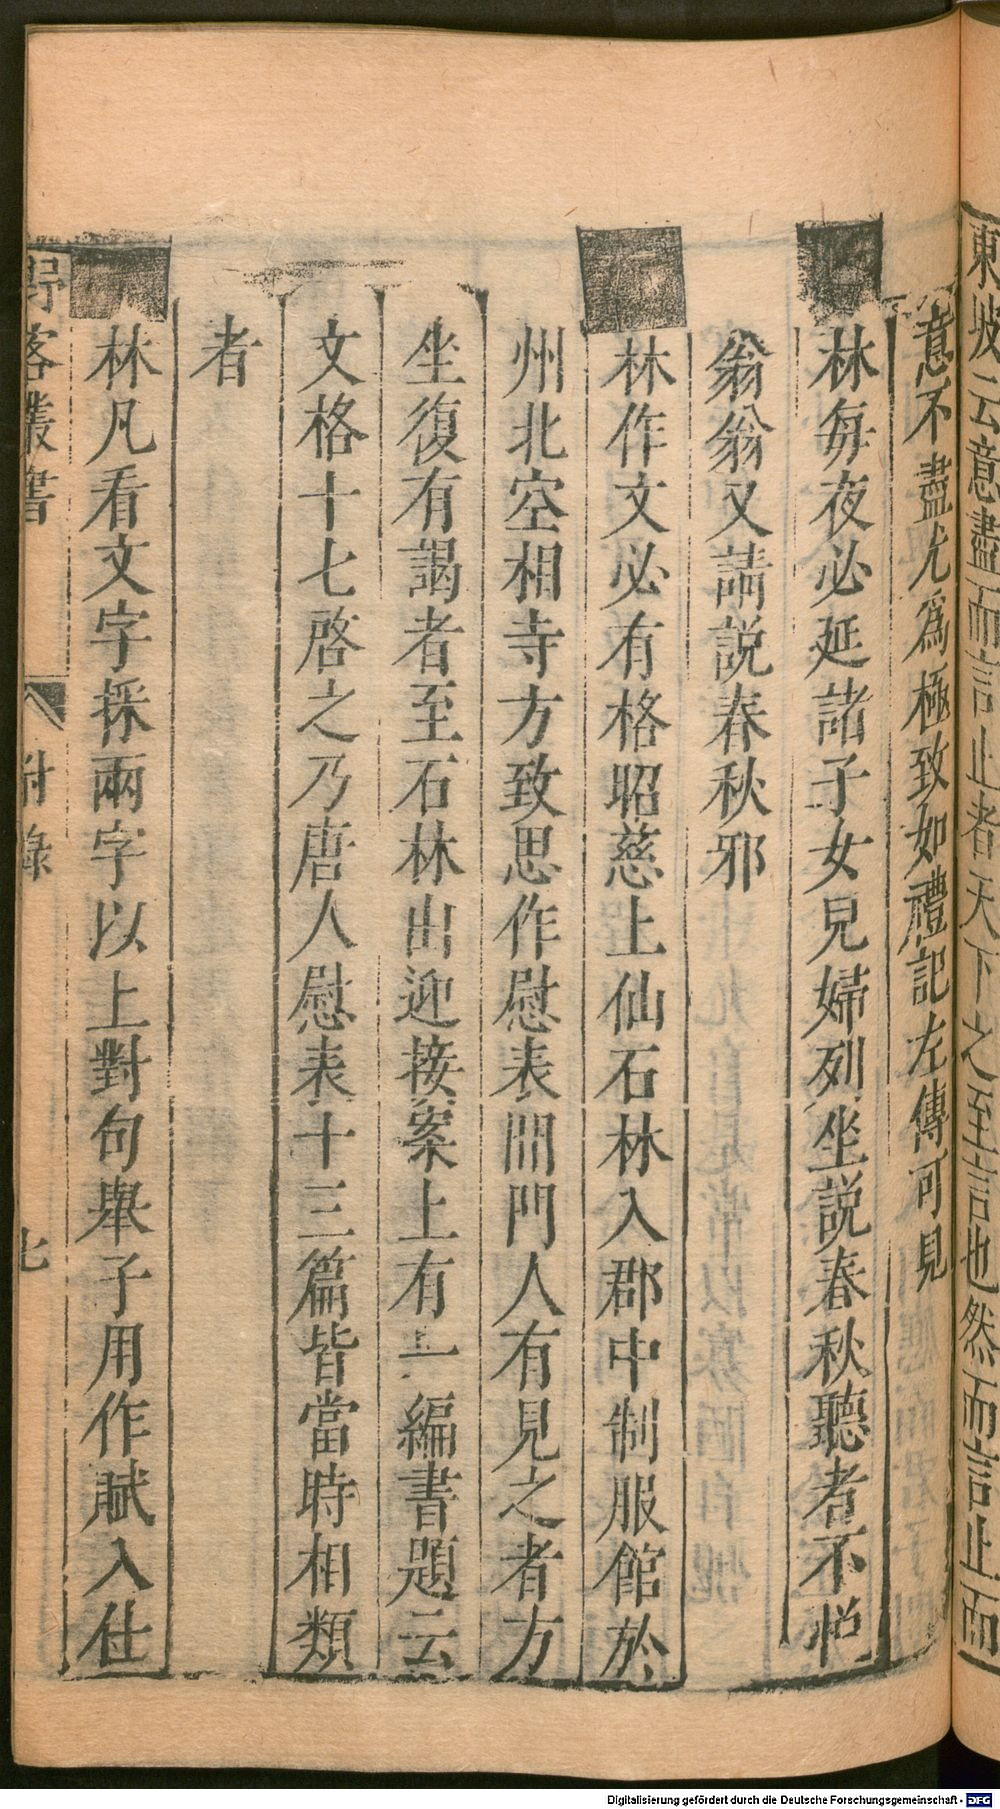 東坡云意盡而言止者天下之至言也然而言止而
意不盡尤爲極致如禮記左傳可見
林每夜必延諸子女兒婦列坐説春秋聽者不悅
翁翁又請説春秋邪
林作文必有格昭慈上仙石林入郡中制服館於
州北空相寺方致思作慰表門人有見之者方
坐復有謁者至石林出迎接案上有一編書題云
文格十七啓之乃唐人慰表十三篇皆當時相類
者
林凡看文字採兩字以上對句舉子用作賦入仕
野客叢書 附錄 七
Digitalisierung gefördert durch die Deutsche Forschungsgemeinschaft - DFG